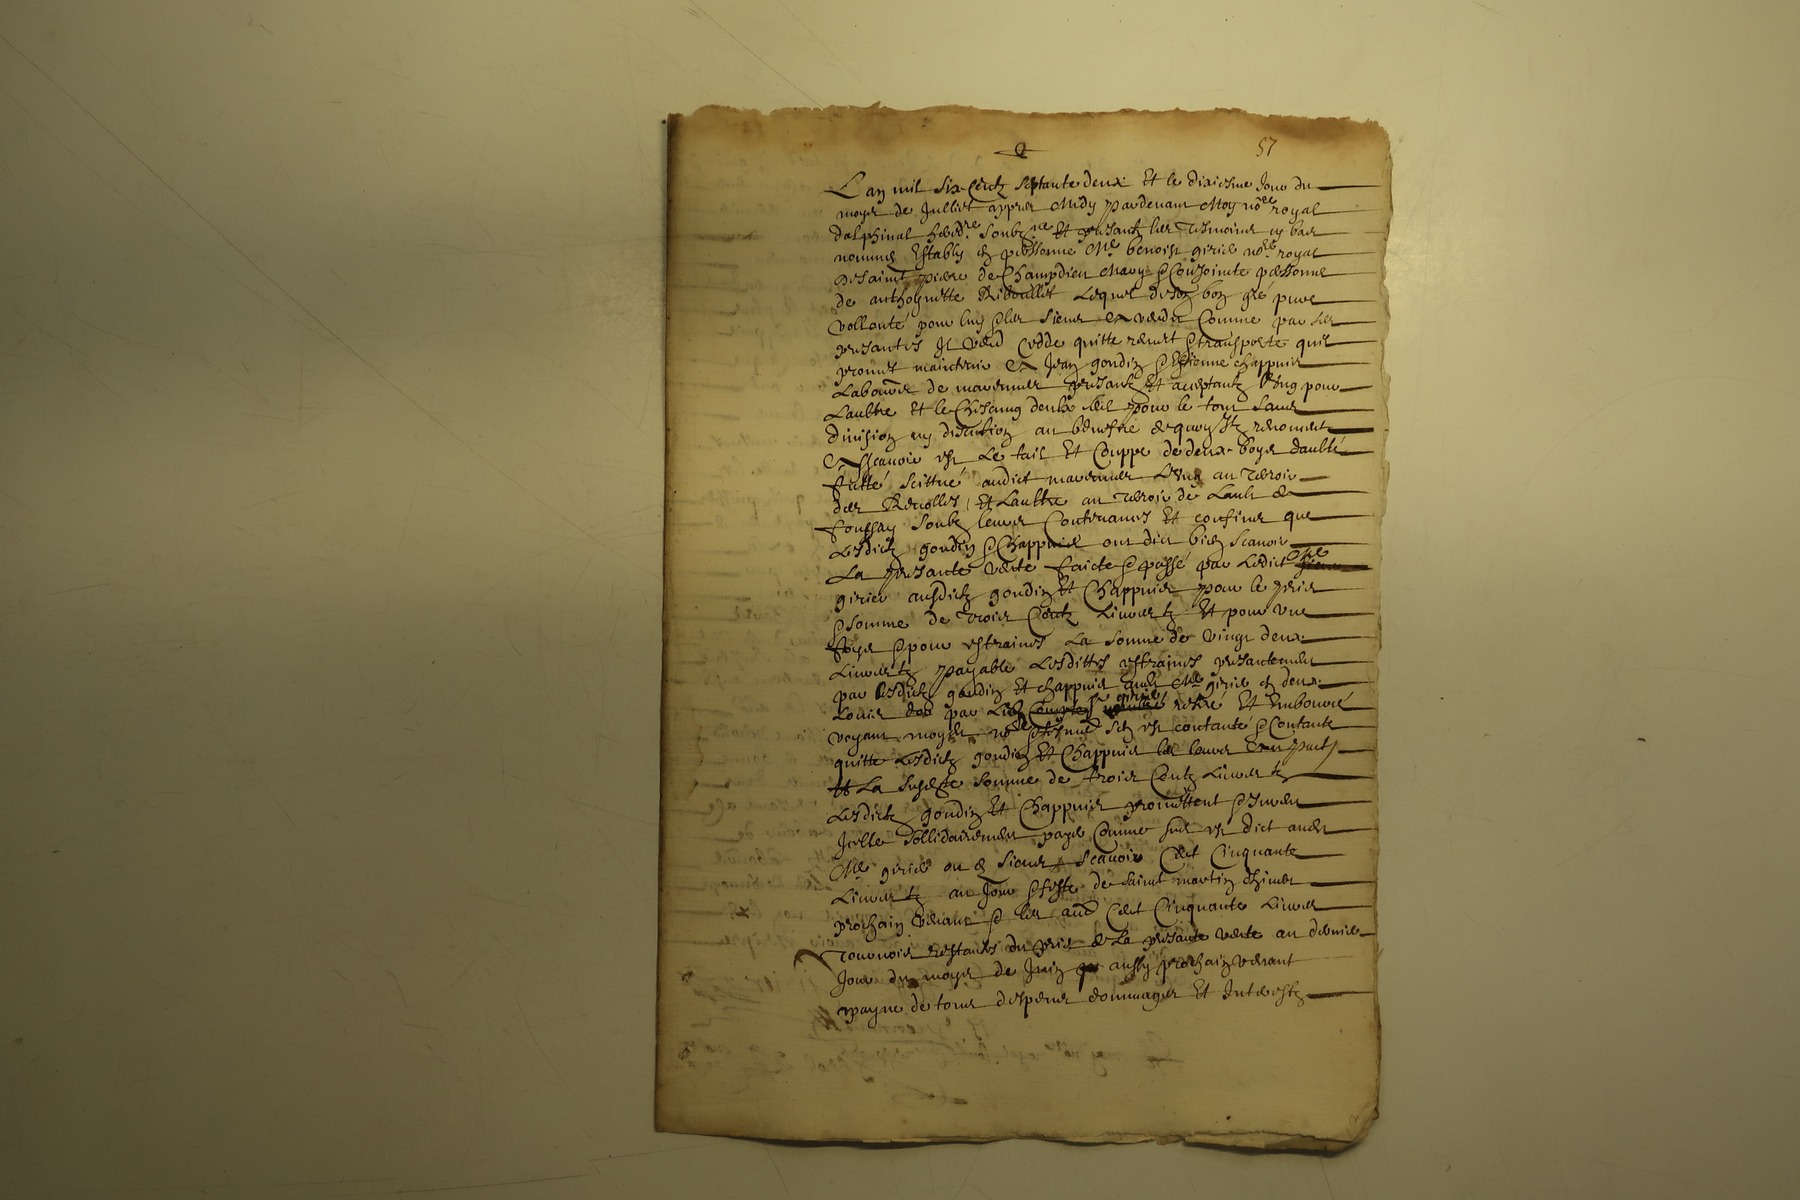 57
Lan mil six Centz septante deux Et le dixiesme Jour du
moys de Julliet appres Midy pardevant Moy no.re royal
dalphinal héréd.re soubz.né Et presantz les Tesmoins cy bas
nommes Estably en personne M.e benoist girier no.re royal
de saint pierre de Champdieu Mary & Conjointe personne
de anthoynette Lequel de son bon gré pure
vollonté pour luy & les siens a vendu Comme par ses
presantes Il vend Cedde quitte remet & transporte quil
promet maintenir A Jean goudin & Estienne chappuis
Laboures de marennes presantz Et acceptantz Lung pour
Laultre Et le Chescung deulx seul pour le tout sans
division ny discution au benefice de quoy Ilz renoncent
Asscavoir est Le tail Et Couppe de deux boys daulte
futté scittué audict marennes Lung au Terroir
des Et Laultre au Terroir de Laulx de
soubz leurs Contenances Et confins que
Lesdictz goudin & Chappuis ont dict bien scavoir
La presante vente faicte & passé par Ledict M.e
girier ausdictz goudin Et Chappuis pour le prix
& somme de Trois Centz Livres tz Et pour une
foys & pour estraines La somme de vingt deux
Livres tz payable Lesdittes estraines presantement
par Lesdictz goudin Et chappuis audit M.e girier en deux
Louis dor par Led girier retiré Et Emboursé
voyant moydit no.re & tesmoins sen est contanté & Contante
quitte Lesdictz goudin Et Chappuis
Et La susdite somme de trois Centz Livres tz
Lesdictz goudin Et Chappuis promettent &
Icelle sollidairement payer Comme sus est dict audit
M.e girier ou es siens scavoir Cent Cinquante
Livres tz au Jour & feste de saint martin dhiver
prochain venant & les aud Cent Cinquante Livres
Tournois restantes du prix de La presante vente au dernier
Jour du moys de Juin aussy prochain venant
payne de tous despens dommages Et Interestz